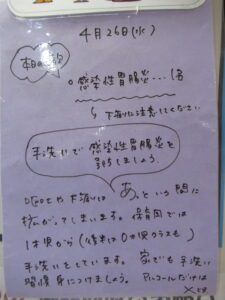 4月26日(水)
本日の欠
○感染性胃腸炎…1名
↳下痢に注意してください
手洗いで感染性胃腸炎を
予防しましょう。
嘔吐や下痢は あっという間に
拡がってしまいます。保育園では
1才児から(後半は0才児クラスも)
手洗いをしています。家でも手洗い
習慣身につけましょう。アルコールだけは
×です